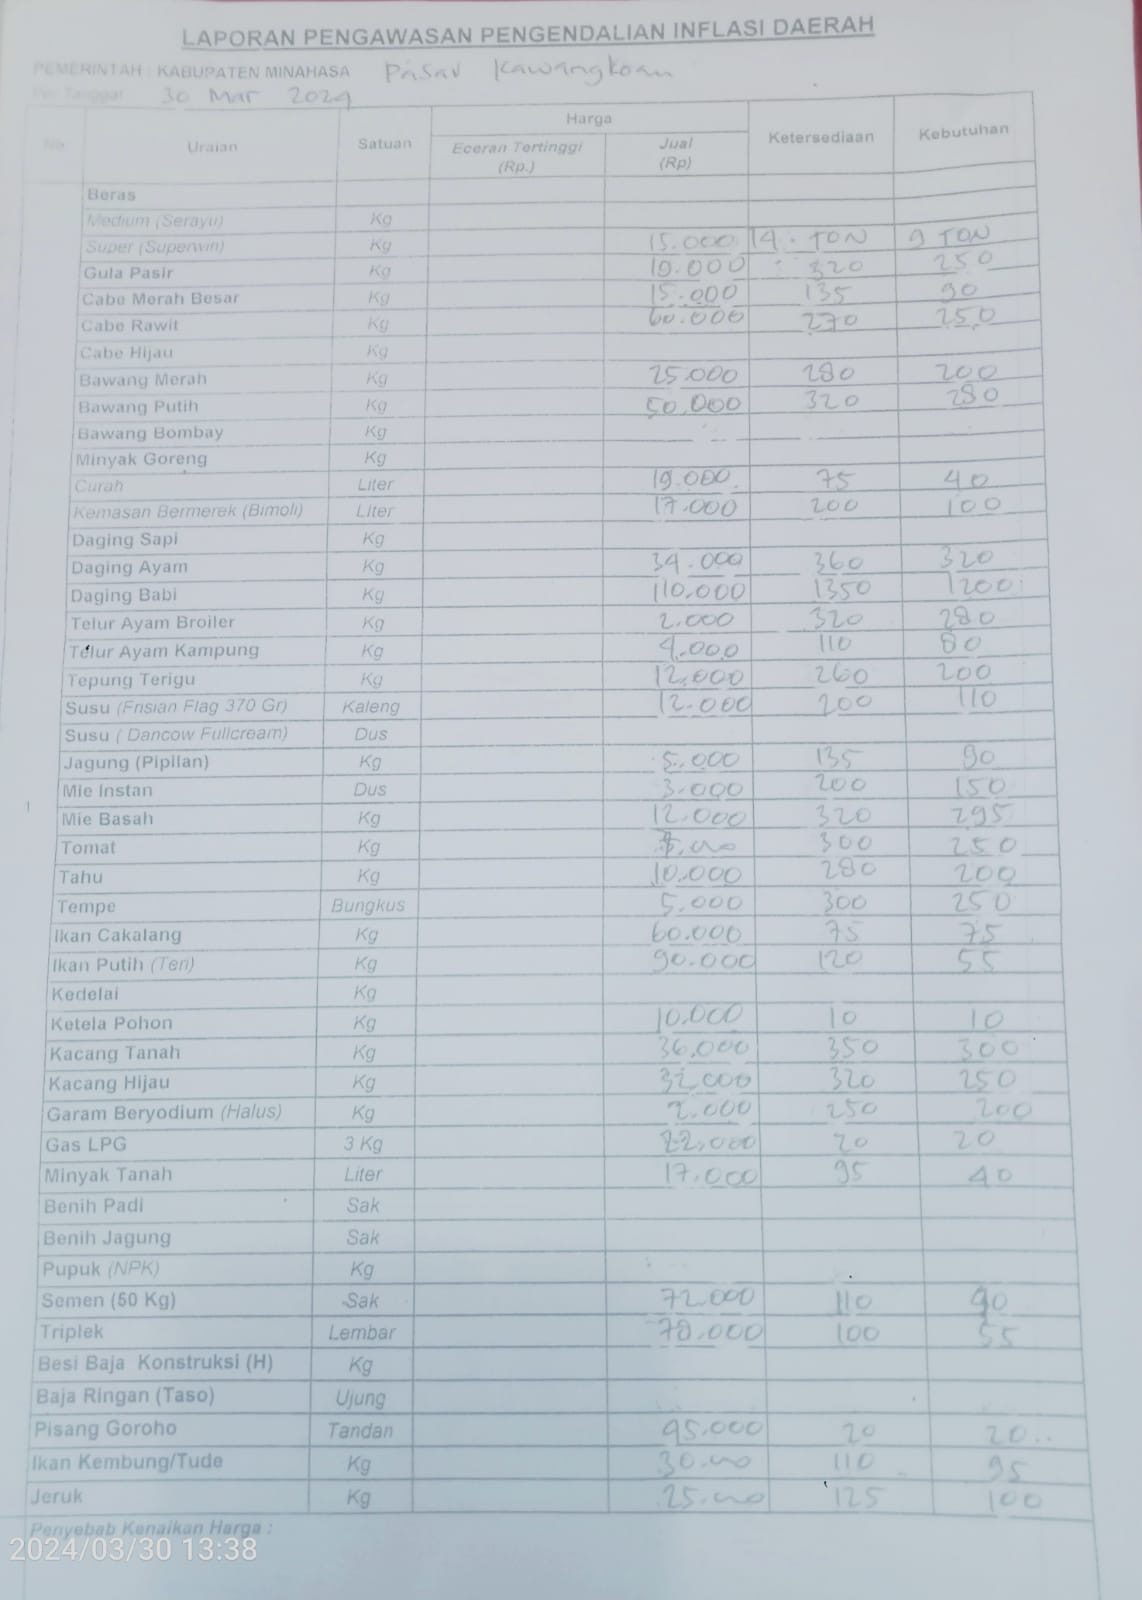 LAPORAN PENGAWASAN PENGENDALIAN INFLASI DAERAH
PEMERINTAH : KABUPATEN MINAHASA Pasar Kawangkoan
Per Tanggal 30 Mar 2024
No Uraian Satuan Harga Ketersediaan Kebutuhan
Eceran Tertinggi (Rp.) Jual (Rp)
Beras
Medium (Serayu) Kg
Super (Superwin) Kg 15.000 14. TON 9 TON
Gula Pasir Kg 19.000 320 250
Cabe Merah Besar Kg 15.000 135 90
Cabe Rawit Kg 60.000 270 250
Cabe Hijau Kg
Bawang Merah Kg 25.000 280 200
Bawang Putih Kg 50.000 320 280
Bawang Bombay Kg
Minyak Goreng Kg
Curah Liter 19.000 75 40
Kemasan Bermerek (Bimoli) Liter 17.000 200 100
Daging Sapi Kg
Daging Ayam Kg 34.000 360 320
Daging Babi Kg 110.000 1350 1200
Telur Ayam Broiler Kg 2.000 320 280
Telur Ayam Kampung Kg 4.000 110 80
Tepung Terigu Kg 12.000 260 200
Susu (Frisian Flag 370 Gr) Kaleng 12.000 200 110
Susu ( Dancow Fullcream) Dus
Jagung (Pipilan) Kg 5.000 135 90
Mie Instan Dus 3.000 200 150
Mie Basah Kg 12.000 320 295
Tomat Kg 300 250
Tahu Kg 10.000 280 200
Tempe Bungkus 5.000 300 250
Ikan Cakalang Kg 60.000 75 75
Ikan Putih (Teri) Kg 90.000 120 55
Kedelai Kg
Ketela Pohon Kg 10.000 10 10
Kacang Tanah Kg 36.000 350 300
Kacang Hijau Kg 32.000 320 250
Garam Beryodium (Halus) Kg 2.000 250 200
Gas LPG 3 Kg 22.000 20 20
Minyak Tanah Liter 17.000 95 40
Benih Padi Sak
Benih Jagung Sak
Pupuk (NPK) Kg
Semen (50 Kg) Sak 72.000 110 90
Triplek Lembar 78.000 100 55
Besi Baja Konstruksi (H) Kg
Baja Ringan (Taso) Ujung
Pisang Goroho Tandan 95.000 20 20..
Ikan Kembung/Tude Kg 30.000 110 95
Jeruk Kg 25.000 125 100
Penyebab Kenaikan Harga :
2024/03/30 13:38